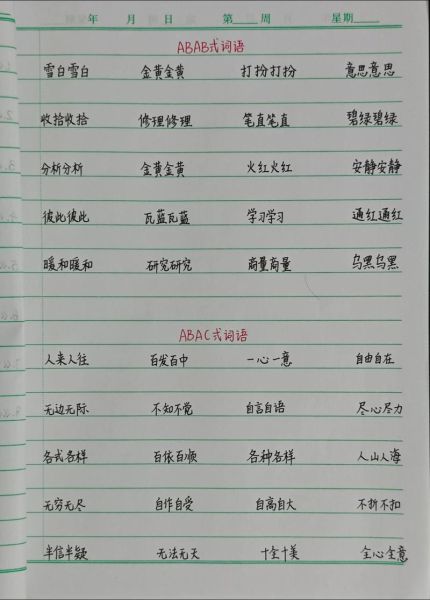 年 月 日 第 周 星期
ABAB式词语
雪白雪白 金黄金黄 打扮打扮 意思意思
收拾收拾 修理修理 笔直笔直 碧绿碧绿
分析分析 金黄金黄 火红火红 安静安静
彼此彼此 瓦蓝瓦蓝 学习学习 通红通红
暖和暖和 研究研究 商量商量 乌黑乌黑
ABAC式词语
人来人往 百发百中 一心一意 自由自在
无边无际 不知不觉 自言自语 尽心尽力
各式各样 百依百顺 各种各样 人山人海
无穷无尽 自作自受 自高自大 不折不扣
半信半疑 无法无天 十全十美 全心全意